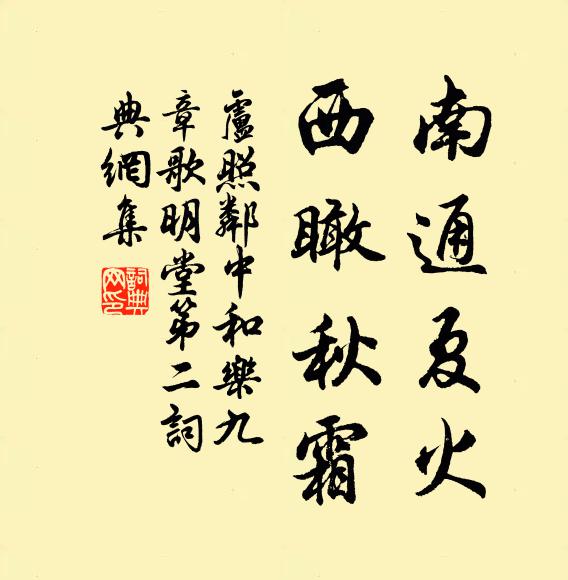 南通夏火
西瞰秋霜
盧照鄰中和樂九
章歌明堂第二詞
典網集
詞典網印